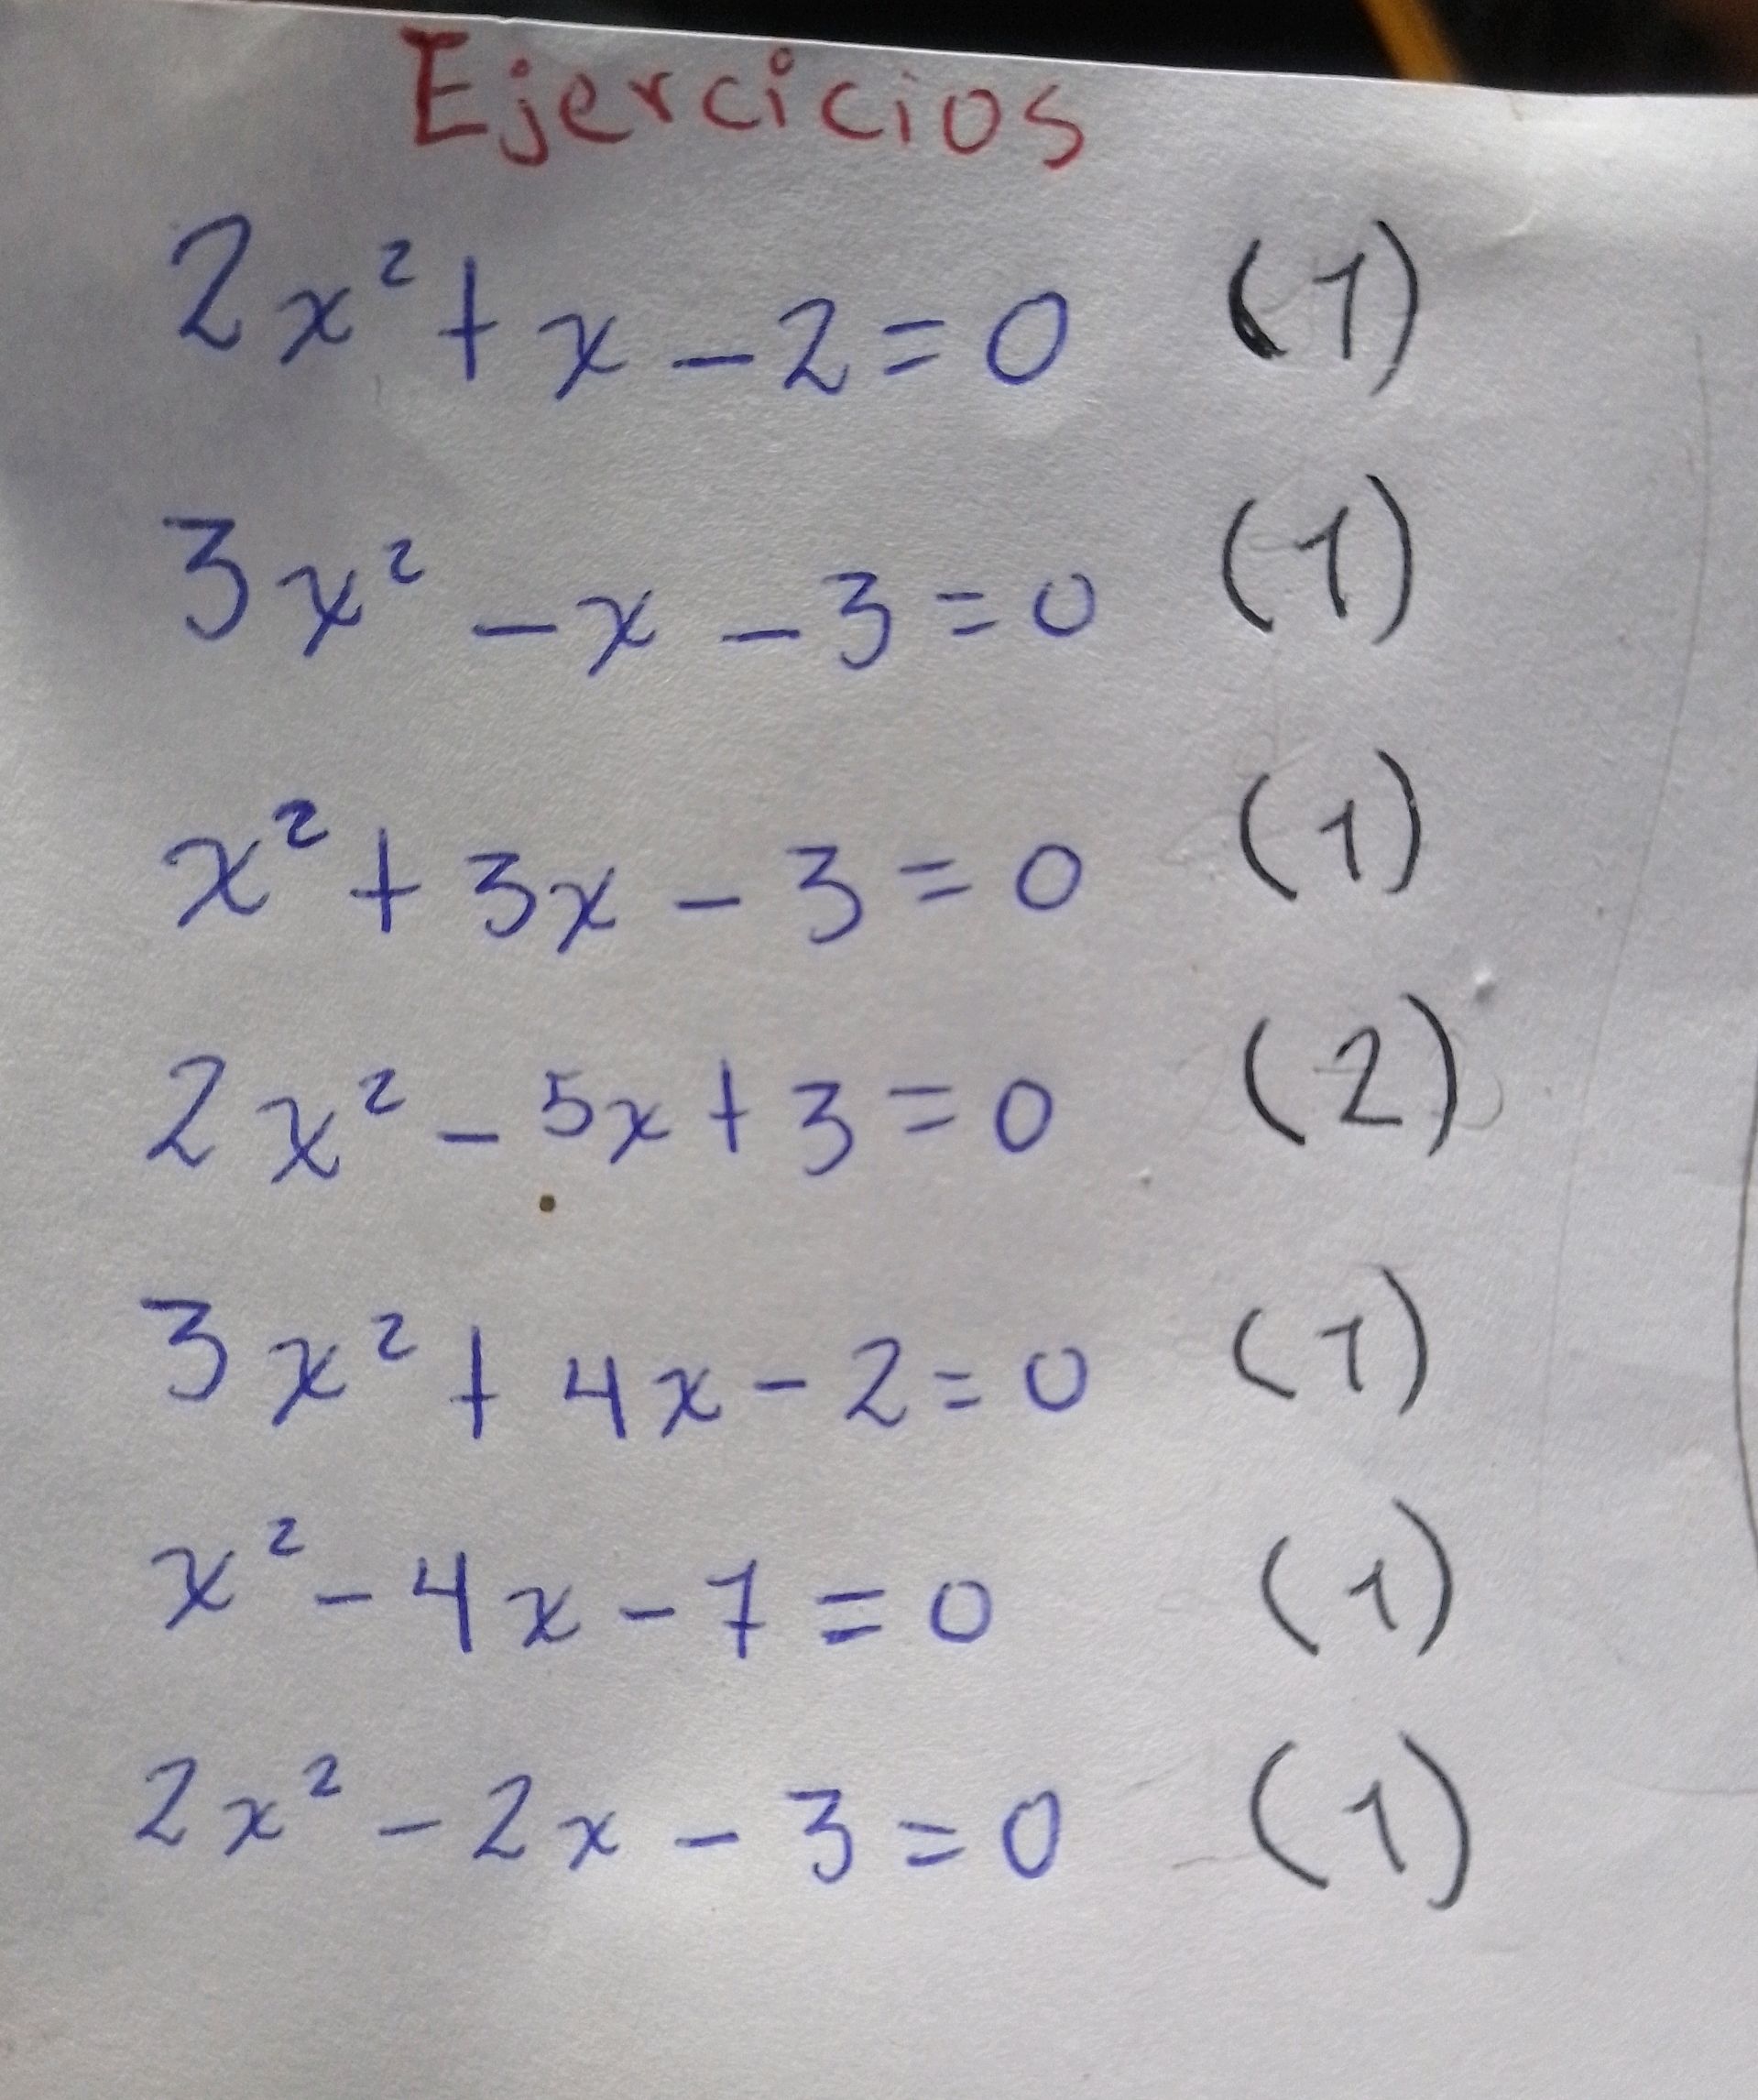 Ejercicios
2x² + x - 2 = 0 (1)
3x² - x - 3 = 0 (1)
x² + 3x - 3 = 0 (1)
2x² - 5x + 3 = 0 (2)
3x² + 4x - 2 = 0 (1)
x² - 4x - 7 = 0 (1)
2x² - 2x - 3 = 0 (1)